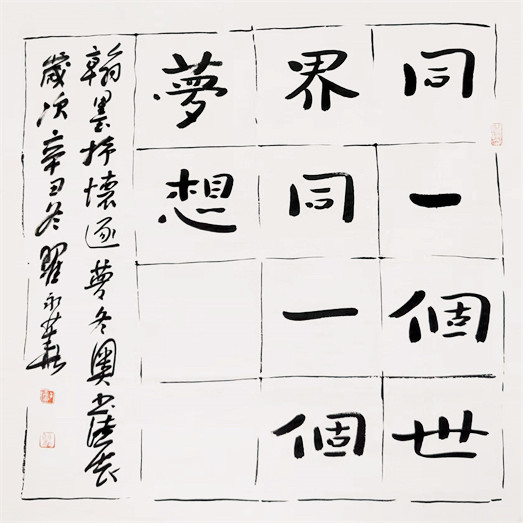 同一個世
界同一個
夢想
翰墨抒懷逐夢冬奧書法展
歲次辛丑冬翟永華